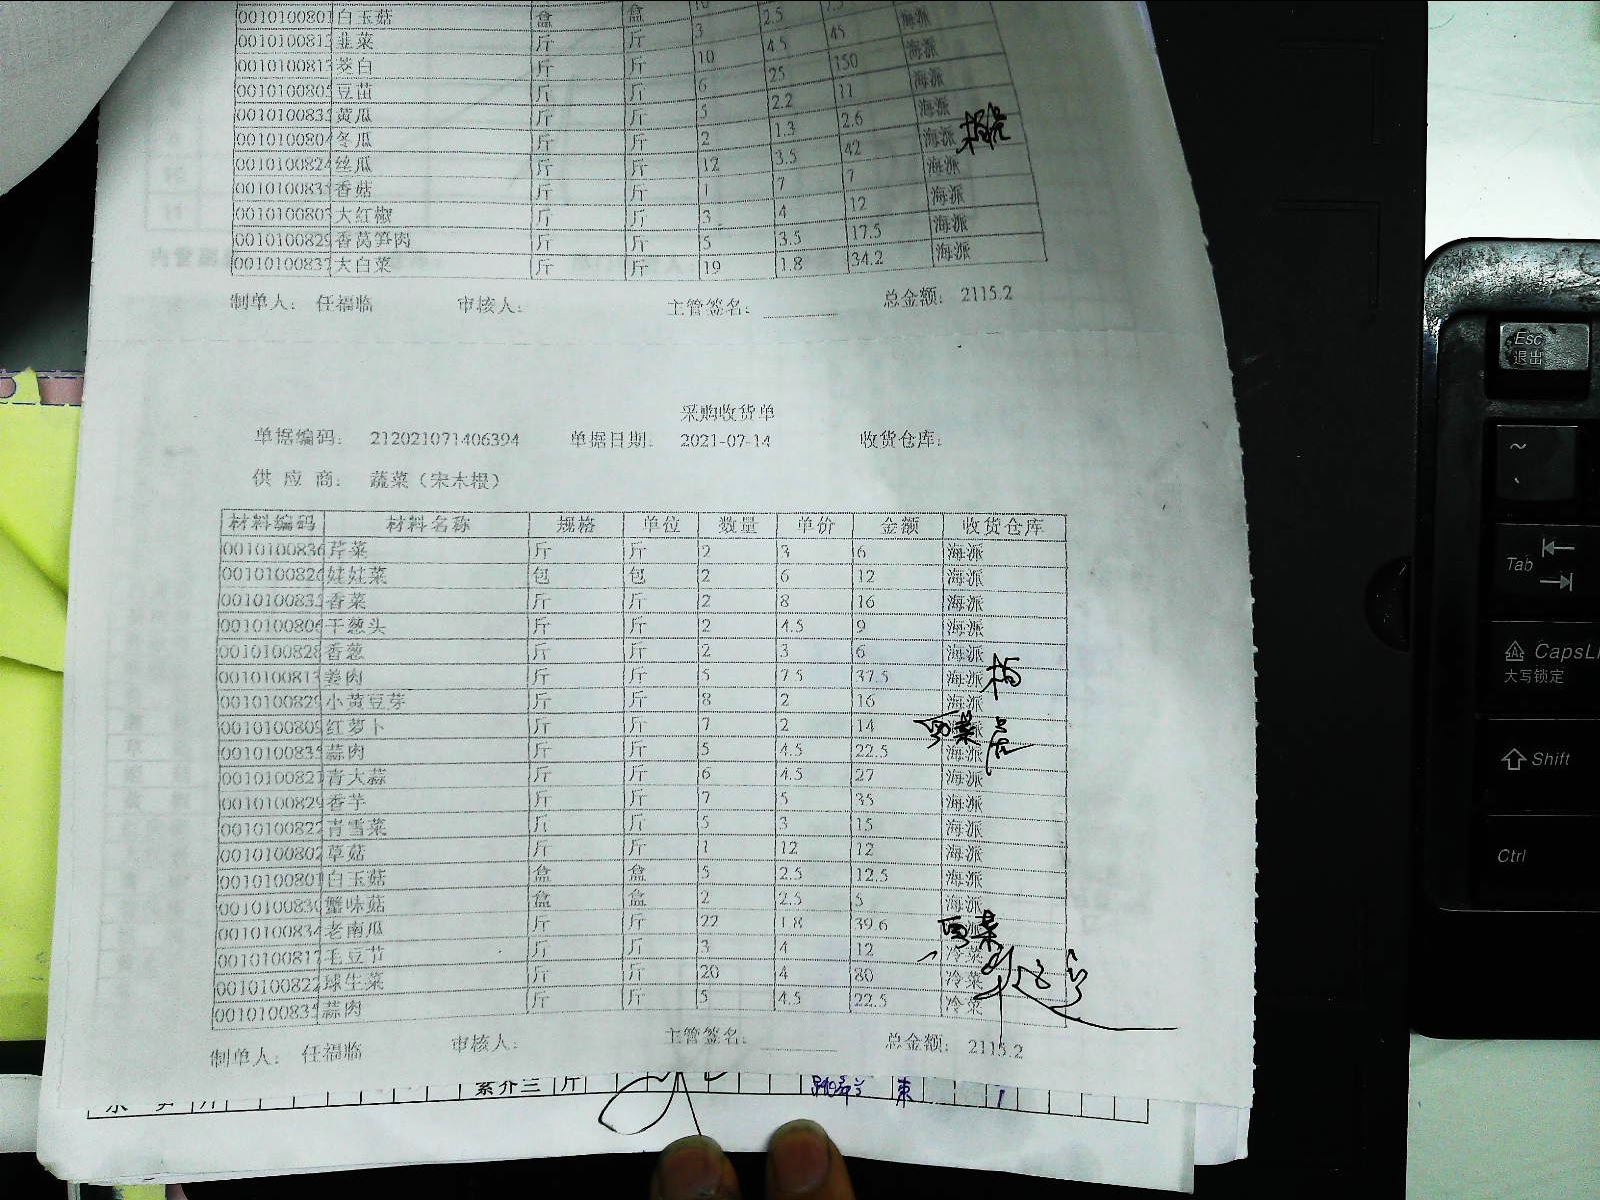 0010100801 白玉菇 盒 盒 3 2.5 7.5 海派
0010100813 韭菜 斤 斤 10 4.5 45 海派
0010100813 茭白 斤 斤 6 25 150 海派
0010100805 豆苗 斤 斤 5 2.2 11 海派
0010100833 黄瓜 斤 斤 2 1.3 2.6 海派
0010100804 冬瓜 斤 斤 12 3.5 42 海派
0010100824 丝瓜 斤 斤 1 7 7 海派
0010100833 香菇 斤 斤 3 4 12 海派
0010100803 大红椒 斤 斤 5 3.5 17.5 海派
0010100829 香莴笋肉 斤 斤 19 1.8 34.2 海派
0010100837 大白菜
制单人: 任福临 审核人: 主管签名: 总金额: 2115.2
采购收货单
单据编码: 212021071406394 单据日期: 2021-07-14 收货仓库:
供 应 商: 蔬菜(宋木根)
材料编码 材料名称 规格 单位 数量 单价 金额 收货仓库
0010100836 芹菜 斤 斤 2 3 6 海派
0010100826 娃娃菜 包 包 2 6 12 海派
0010100833 香菜 斤 斤 2 8 16 海派
0010100806 干葱头 斤 斤 2 4.5 9 海派
0010100828 香葱 斤 斤 2 3 6 海派
0010100813 姜肉 斤 斤 5 7.5 37.5 海派
0010100829 小黄豆芽 斤 斤 8 2 16 海派
0010100809 红萝卜 斤 斤 7 2 14 海派
0010100835 蒜肉 斤 斤 5 4.5 22.5 海派
0010100821 青大蒜 斤 斤 6 4.5 27 海派
0010100829 香芋 斤 斤 7 5 35 海派
0010100822 青雪菜 斤 斤 5 3 15 海派
0010100802 草菇 斤 斤 1 12 12 海派
0010100801 白玉菇 盒 盒 5 2.5 12.5 海派
0010100830 蟹味菇 盒 盒 2 2.5 5 海派
0010100834 老南瓜 斤 斤 22 1.8 39.6 海派
0010100817 毛豆节 斤 斤 3 4 12 冷菜
0010100822 球生菜 斤 斤 20 4 80 冷菜
0010100835 蒜肉 斤 斤 5 4.5 22.5 冷菜
制单人: 任福临 审核人: 主管签名: 总金额: 2115.2
Esc
退出
~
Tab
大写锁定
Shift
Ctrl